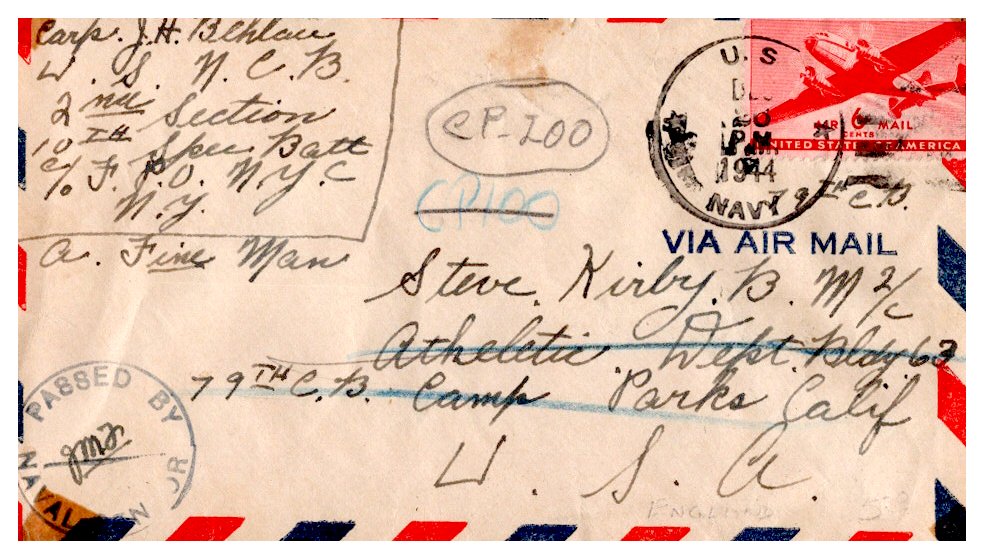 Carp. J.H. Behlau
U. S. N. C. B.
2nd Section
10TH Spec Batt
c/o F. P.O. N.Y.C
N.Y.
A. Fine Man
CP-100
CP100
U.S
DEC
20
P.M
1944
NAVY
AIR 6 MAIL
CENTS
UNITED STATES OF AMERICA
79TH C.B.
VIA AIR MAIL
Steve. Kirby. B. M 2/c
Atheletic. Dept. Bldg 63
79TH C.B. Camp Parks Calif
U. S. A.
PASSED BY
NAVAL
ENGLAND